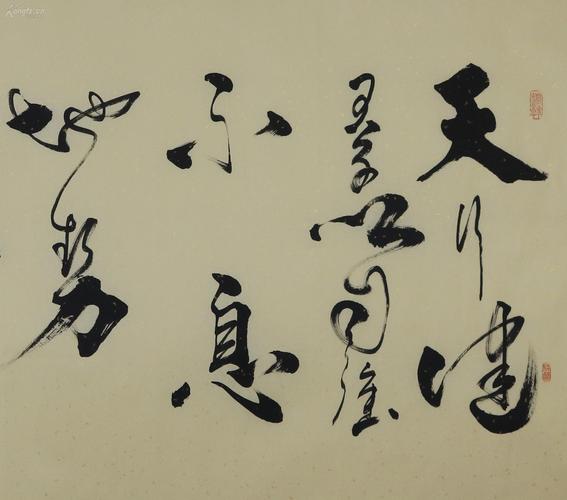 天行健
君子以自强
不息
地势
Kongfz.cn